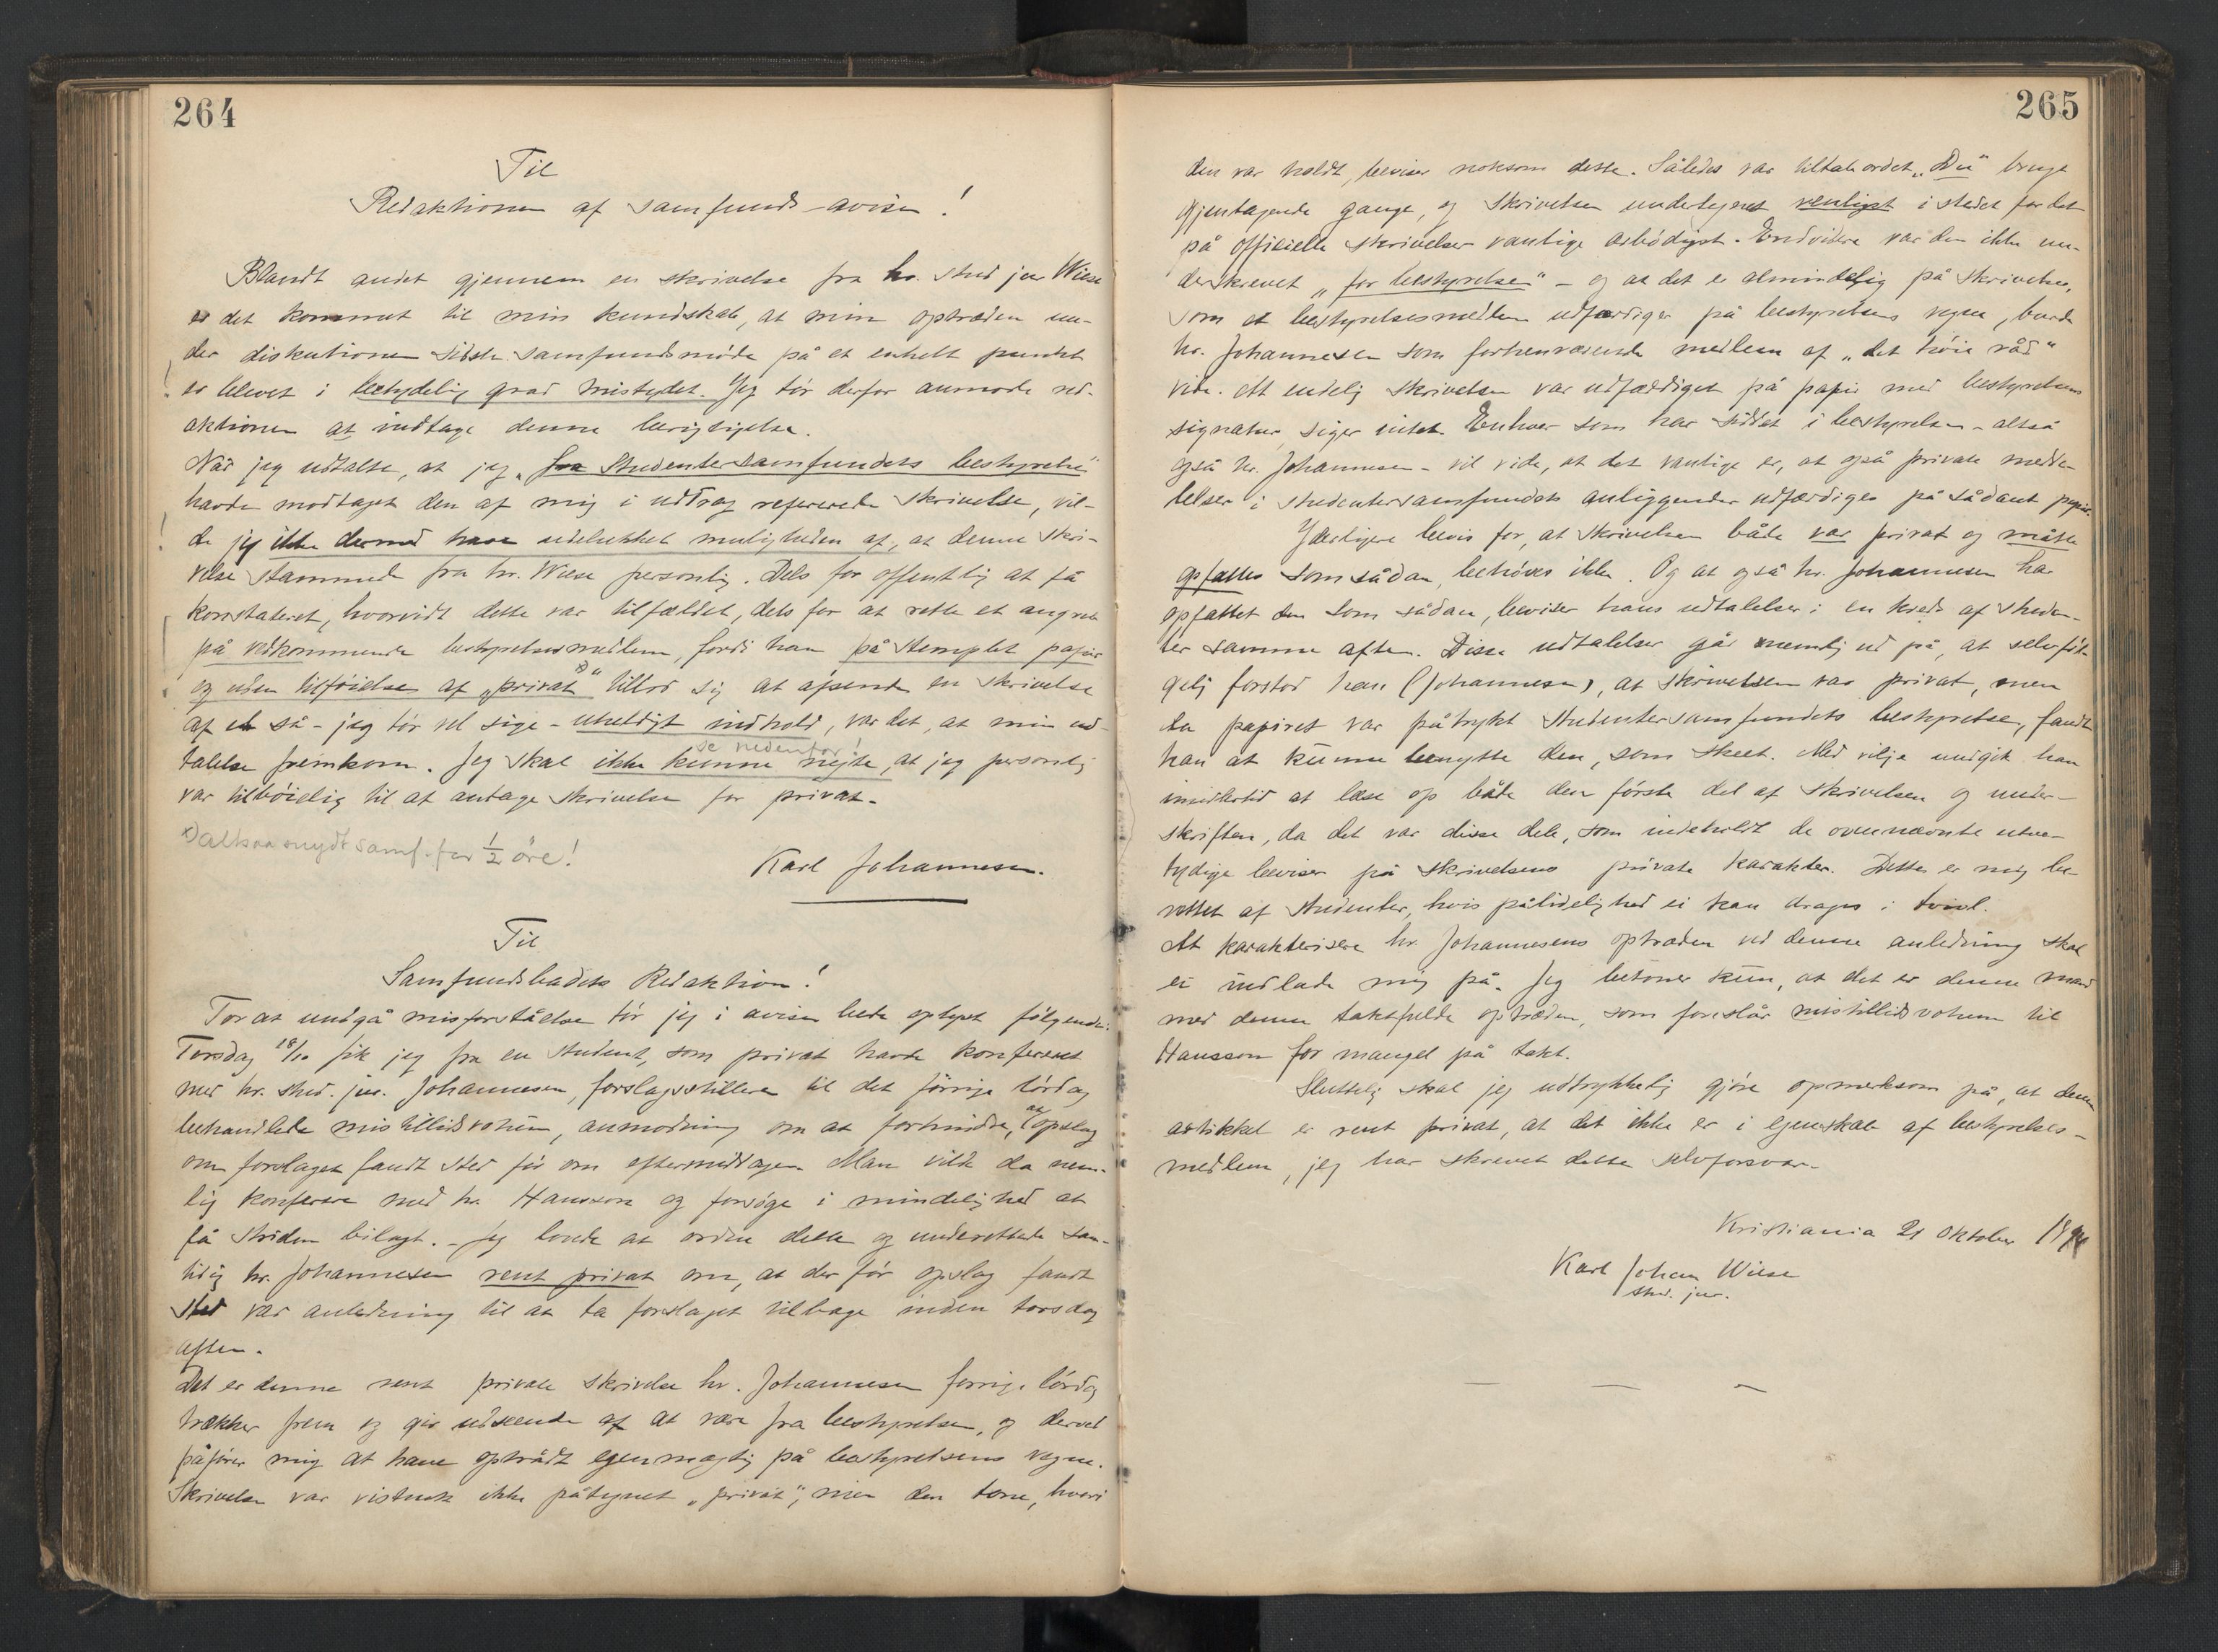 264
Til
Redaktionen af Samfunds-avisen!
Blandt andet gjennem en skrivelse fra hr. stud jur Wiese
er det kommet til min kundskab, at min optræden un-
der diskutionen sidste samfundsmøde på et enkelt punkt
er blevet i betydelig grad mistydet. Jeg tør derfor anmode red-
aktionen at indtage denne berigtigelse.
Når jeg udtalte, at jeg „fra Studentersamfundets bestyrelse"
havde modtaget den af mig i uddrag refererede skrivelse, vil-
de jeg ikke dermed have udelukket muligheden af, at denne skri-
velse stammede fra hr. Wiese personlig. Dels for offentlig at få
konstateret, hvorvidt dette var tilfældet, dels for at rette et angreb
på vedkommende bestyrelsesmedlem, fordi han på stemplet papir
og uden tilføielse af „privat" x) tillod sig at afsende en skrivelse
af et så - jeg tør vel sige - uheldigt indhold, var det, at min ud-
se nedenfor!
talelse fremkom. Jeg skal ikke kunne nejte, at jeg personlig
var tilbøielig til at antage skrivelsen for privat.
x) altsaa snydt samf. for 1/2 öre!
Karl Johannesen.
Til
Samfundsbladets Redaktion!
For at undgå misforståelse tør jeg i avisen bede optaget følgende:
Torsdag 18/10 fik jeg fra en student, som privat havde konfereret
med hr. stud. jur. Johannesen, forslagsstilleren til det forrige lördag
behandlede mistillidsvotum, anmodning om at forhindre, at opslag
om forslaget fandt sted før om eftermiddagen. Man vilde da nem-
lig konferere med hr. Hansson og forsøge i mindelighed at
få striden bilagt. - Jeg lovede at ordne dette og underrettede sam-
tidig hr. Johannesen rent privat om, at der før opslag fandt
sted var anledning til at ta forslaget tilbage inden torsdag
aften.
Det er denne rent private skrivelse hr. Johannesen forrige lördag
trækker frem og gir udseende af at være fra bestyrelsen, og derved
påfører mig at have optrådt egenmægtig på bestyrelsens vegne.
Skrivelsen var vistnok ikke påtegnet „privat", men den tone, hvori
265
den var holdt, beviser noksom dette. Således var tiltaleordet „Du" brugt
gjentagende gange, og skrivelsen undertegnet venligst i stedet for det
på officielle skrivelser vanlige ærbødigst. Endvidere var den ikke un-
derskrevet „for bestyrelsen" - og at det er almindelig på skrivelser,
som et bestyrelsesmedlem udfærdiger på bestyrelsens vegne, burde
hr. Johannesen som forhenværende medlem af „det høie råd"
vide. At endelig skrivelsen var udfærdiget på papir med bestyrelsens
signatur, siger intet. Enhver som har siddet i bestyrelsen - altså
også hr. Johannesen - vil vide, at det vanlige er, at også private medde-
lelser i studentersamfundets anliggender udfærdiges på sådant papir.
Yderligere bevis for, at skrivelsen både var privat og måtte
opfattes som sådan, behøves ikke. Og at også hr. Johannesen har
opfattet den som sådan, beviser hans udtalelser i en kreds af studen-
ter samme aften. Disse udtalelser går nemlig ud på, at selvføl-
gelig forstod han (Johannesen), at skrivelsen var privat, men
da papiret var påtrykt Studentersamfundets bestyrelse, fandt
han at kunne benytte den, som skeet. Med vilje undgik han
imidlertid at læse op både den første del af skrivelsen og under-
skriften, da det var disse dele, som indeholdt de ovennævnte utve-
tydige beviser på skrivelsens private karakter. Dette er mig be-
rettet af studenter, hvis pålidelighed ei kan drages i tvivl.
At karakterisere hr. Johannesens optræden ved denne anledning skal
ei indlade mig på. Jeg betoner kun, at det er denne mand
med denne taktfulde optræden, som foreslår mistillidsvotum til
Hansson for mangel på takt.
Sluttelig skal jeg udtrykkelig gjøre opmerksom på, at denne
artikkel er rent privat, at det ikke er i egenskab af bestyrelses-
medlem, jeg har skrevet dette selvforsvar.
Kristiania 21 oktober 1894
Karl Johan Wiese
stud. jur.